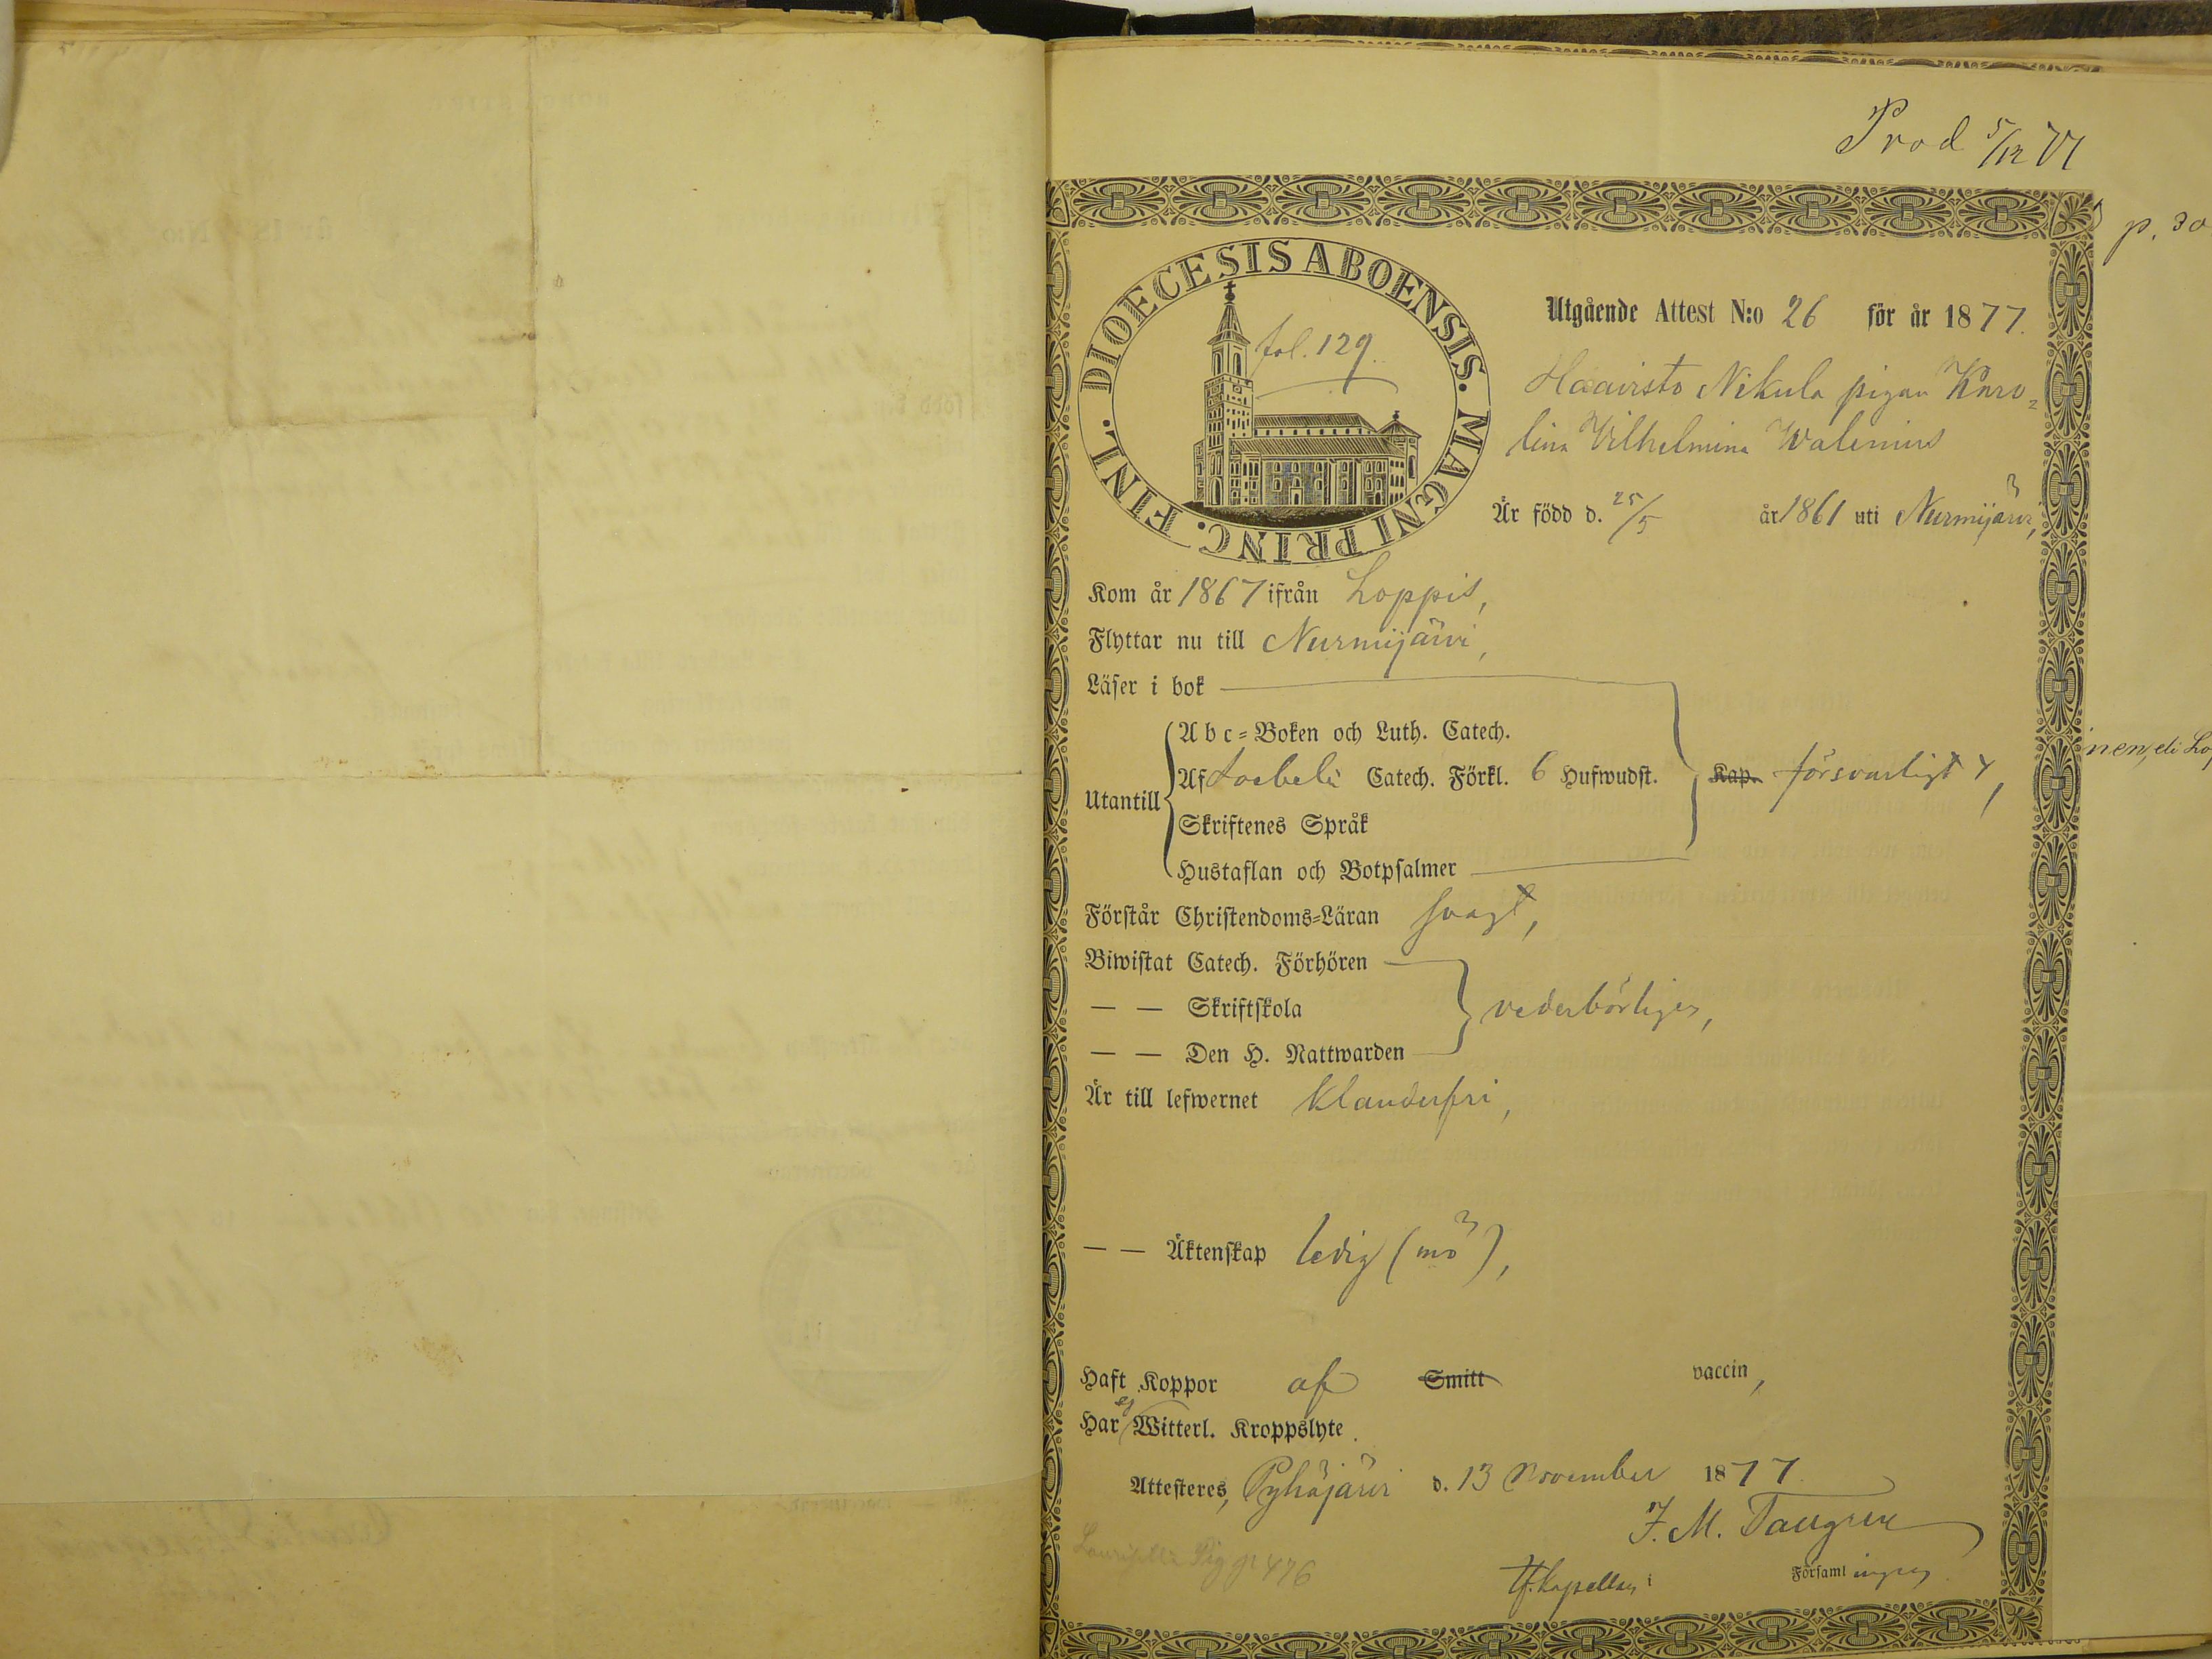 Prod 5/12 77
p. 30
DIOECESIS ABOENSIS. MAGNI PRINC. FINL.
fol. 129.
Utgående Attest N:o 26 för år 1877.
Haavisto Nikula pigan Karo=
lina Vilhelmina Walenius
Är född d. 25/5 år 1861 uti Nurmijärvi,
Kom år 1867 ifrån Loppis,
Flyttar nu till Nurmijärvi,
Läser i bok
Utantill
Abc=Boken och Luth. Catech.
Af Catech. Förkl. 6 Hufwudst. Kap. försvarligt,
Skriftenes Språk
Hustaflan och Botpsalmer
Förstår Christendoms=Läran svagt,
Biwistat Catech. Förhören
— — Skriftskola vederbörligen,
— — Den H. Nattwarden
Är till lefwernet klanderfri,
— — Äktenskap ledig (mö),
Haft Koppor af Smitt vaccin,
Har ej Witterl. Kroppslyte.
Attesteres, Pyhäjärvi d. 13 November 1877.
J. M. Tallgren
tf. Kapellan i Församlingen
476
nen, eli Lo